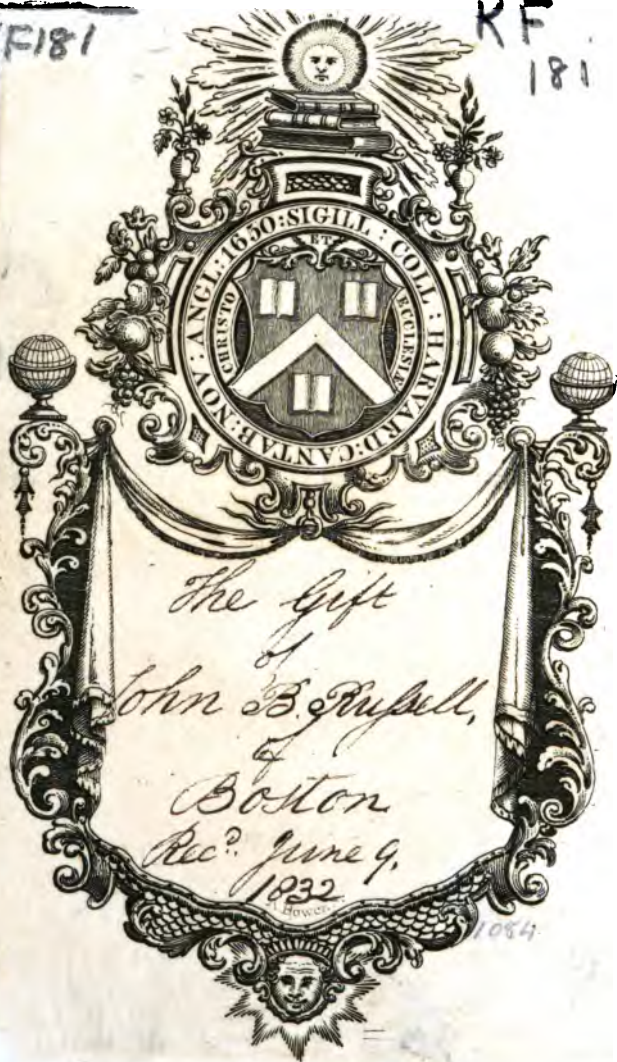 F181
KF
181
SIGILL : COLL : HARVARD : CANTAB : NOV : ANGL : 1650 :
ET
CHRISTO
ECCLESIÆ
The Gift
of
John B. Russell,
of
Boston
Recd. June 9.
1832
Bowen
1084